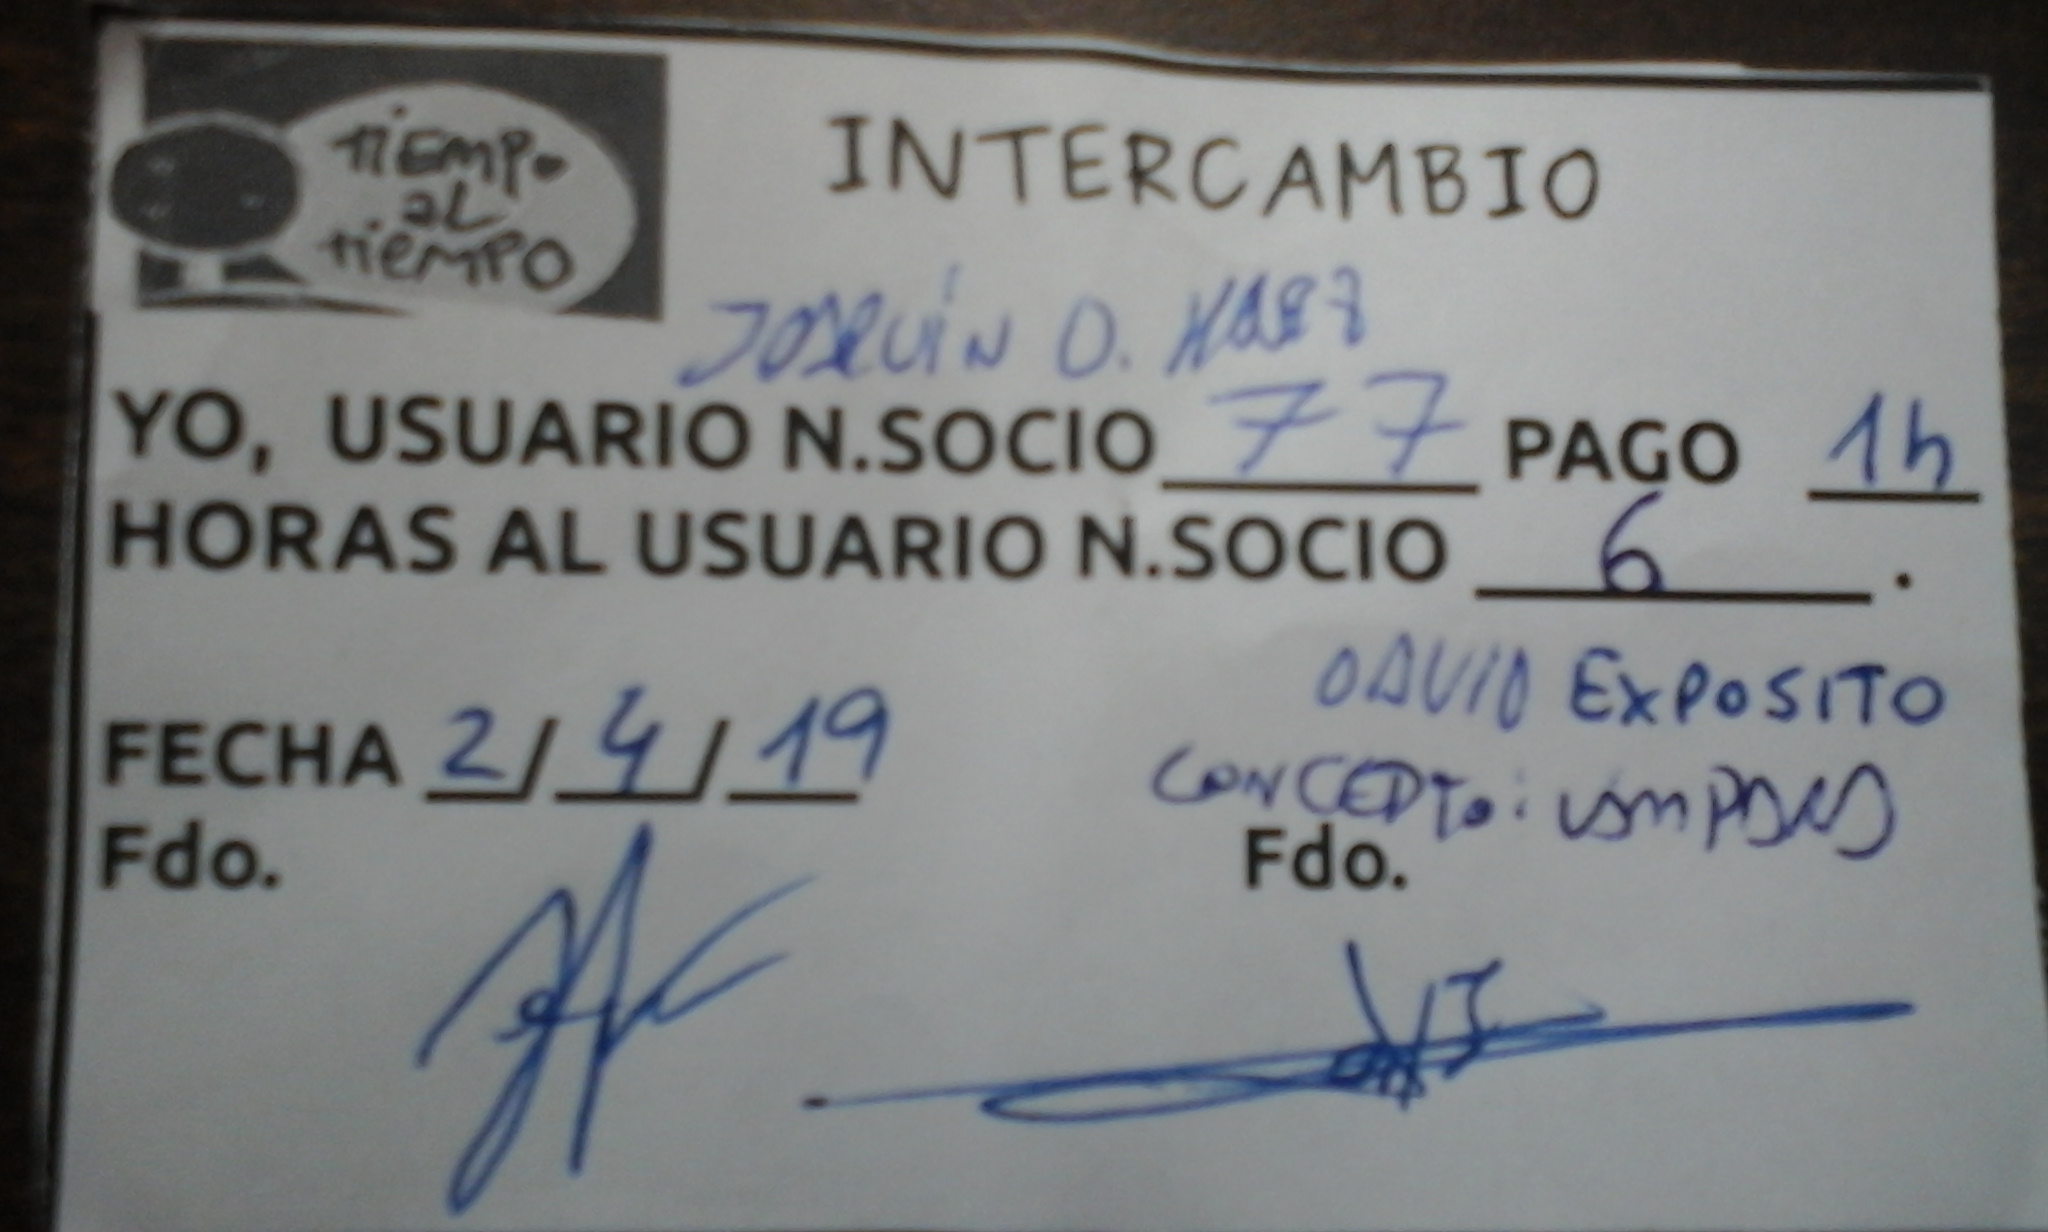 tiEMPo
aL
tiEMPO
INTERCAMBIO
JOAQUÍN O.
YO, USUARIO N.SOCIO 77 PAGO 1h
HORAS AL USUARIO N.SOCIO 6.
DAVID EXPOSITO
FECHA 2/4/19
CONCEPTO:
Fdo.
Fdo.